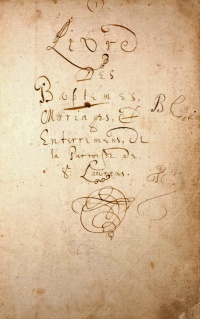 Livre
Des
Baptemes,
Mariages, &
Enterremens, de
la Paroisse de
St Laurens.